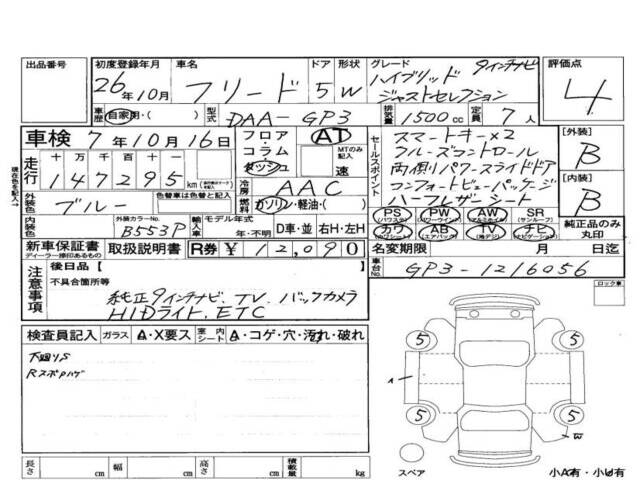 出品番号
初度登録年月 車名 ドア 形状 グレード 評価点
26年10月 フリード 5 W ハイブリッド 9インチナビ
ジャストセレクション
4
車歴 自家用・( ) 型式 DAA-GP3 排気量 1500cc 定員 7人
車検 7年10月16日
フロア コラム ダッシュ AT MTのみ記入 速
走行 十万 万 千 百 十 一
147295 km
冷房 AAC
燃料 ガソリン・軽油・( )
現在色を記入→
外装色 ブルー 色替車は色替と記入
内装色 外装カラーNo. B553P
輸入車 モデル年式 年・不明 D車・並 右H・左H
セールスポイント
スマートキー×2
クルーズコントロール
両側パワースライドドア
コンフォートビューパッケージ
ハーフレザーシート
[外装] B
[内装] B
PS (パワステ) PW (パワーウインド) AW (アルミホイル) SR (サンルーフ)
カワ AB (エアバック) TV ナビ (ナビゲーション)
純正品のみ丸印
新車保証書 ディーラー捺印あるもの 取扱説明書 R券 ¥12,090
名変期限 月 日迄
注意事項 後日品[ ]
不具合箇所等
純正9インチナビ、TV、バックカメラ
HIDライト、ETC
車台No. GP3-1216056
ロック車
検査員記入 ガラス A・X要ス 室内シート A・コゲ・穴・汚れ・破れ
下廻りS
5 5
A
5 5
W
スペア
小A有・小U有
長さ cm 幅 cm 高さ cm 積載量 kg